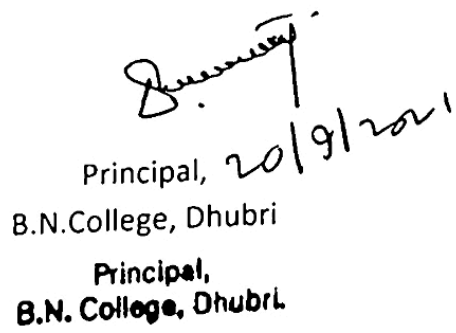 Principal, 20/9/2021
B.N.College, Dhubri
Principal,
B.N. College, Dhubri.